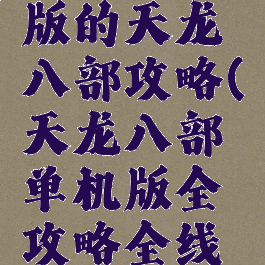 版的天龙
八部攻略(
天龙八部
单机版全
攻略全线